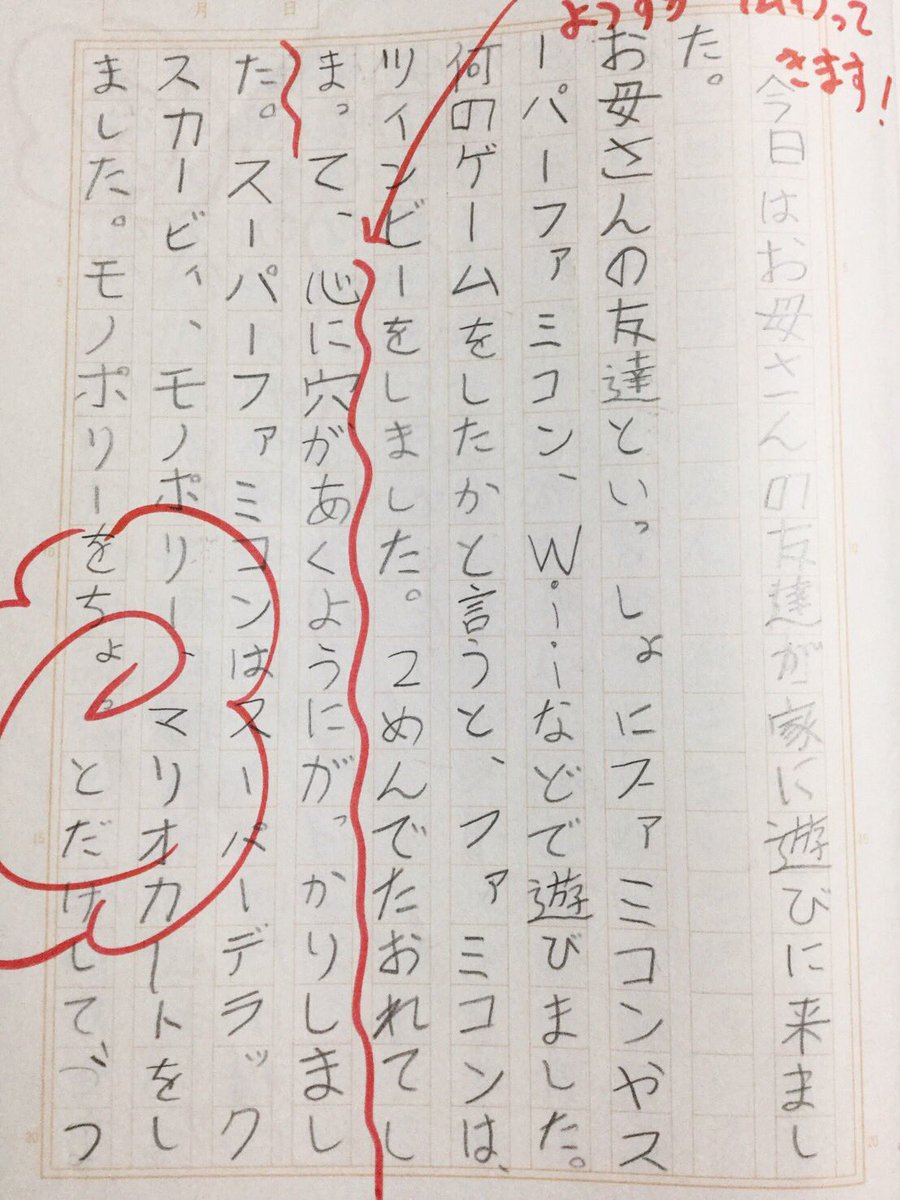 月 日
ようすが
伝わって
きます!
今日はお母さんの友達が家に遊びに来まし
た。
お母さんの友達といっしょにファミコンやス
ーパーファミコン、Wiiなどで遊びました。
何のゲームをしたかと言うと、ファミコンは、
ツインビーをしました。2めんでたおれてし
まって、心に穴があくようにがっかりしまし
た。スーパーファミコンはスーパーデラック
スカービィ、モノポリー、マリオカートをし
ました。モノポリーをちょっとだけしてづつ